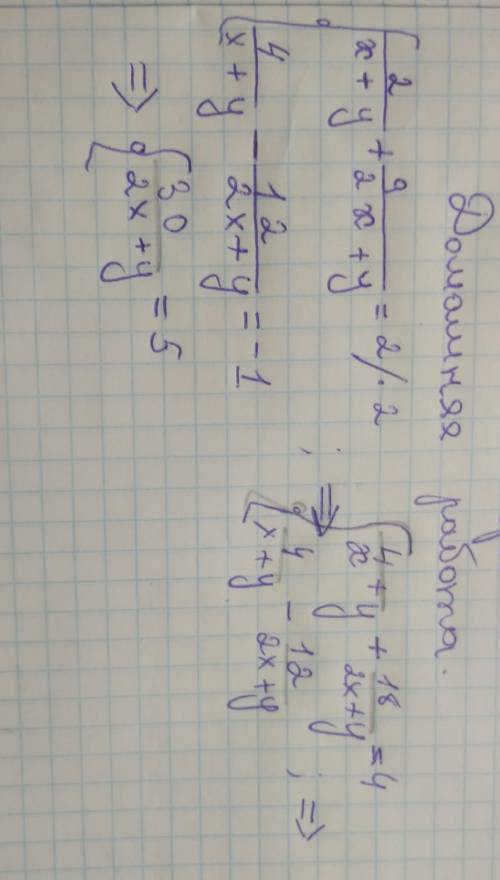 Домашняя работа.
{ 2/(x+y) + 9/(2x+y) = 2 /·2
4/(x+y) - 12/(2x+y) = -1 ; ⇒
{ 4/(x+y) + 18/(2x+y) = 4
4/(x+y) - 12/(2x+y) ; ⇒
⇒ { 30/(2x+y) = 5